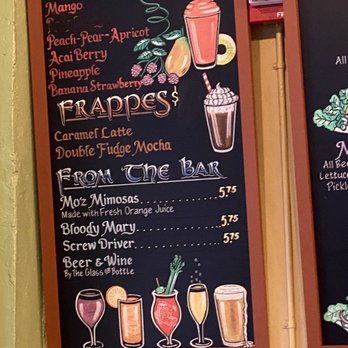 Mango
Peach-Pear-Apricot
Acai Berry
Pineapple
Banana Strawberry
FRAPPES $
Caramel Latte
Double Fudge Mocha
FROM THE BAR
Mo'z Mimosas 5.75
Made with Fresh Orange Juice
Bloody Mary 5.75
Screw Driver 5.75
Beer & Wine
By The Glass or Bottle
All
M
All Be
Lettuc
Pickl
All